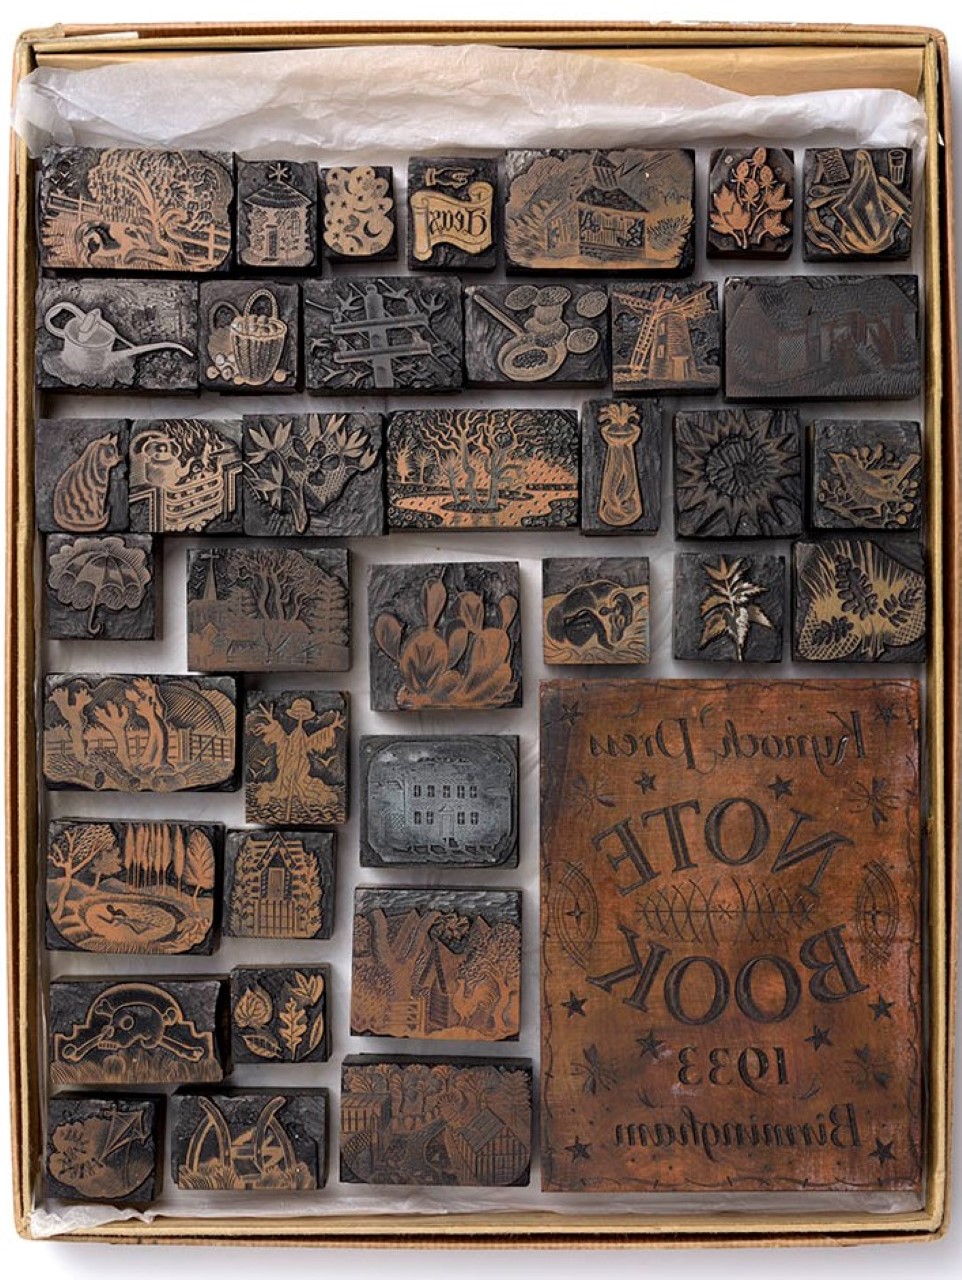 Kynoch Press
NOTE
BOOK
1933
Birmingham